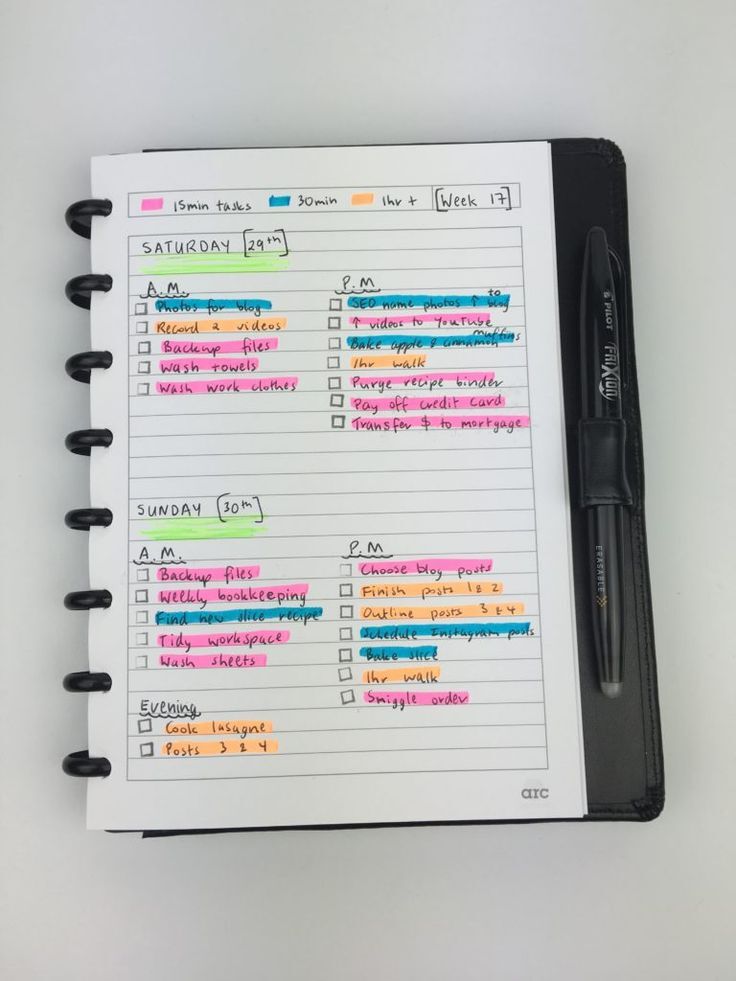 15min tasks 30min 1hr + [Week 17]
SATURDAY [29th]
A.M.
Photos for blog
Record 2 videos
Backup files
Wash towels
Wash work clothes
P.M
SEO name photos ↑ to blog
↑ videos to YouTube
Bake apple & cinnamon muffins
1hr walk
Purge recipe binder
Pay off credit card
Transfer $ to mortgage
SUNDAY [30th]
A.M.
Backup files
Weekly bookkeeping
Find new slice recipe
Tidy workspace
Wash sheets
P.M
Choose blog posts
Finish posts 1 & 2
Outline posts 3 & 4
Schedule Instagram posts
Bake slice
1hr walk
Smiggle order
Evening
Cook lasagne
Posts 3 & 4
arc
PILOT FRIXION
ERASABLE